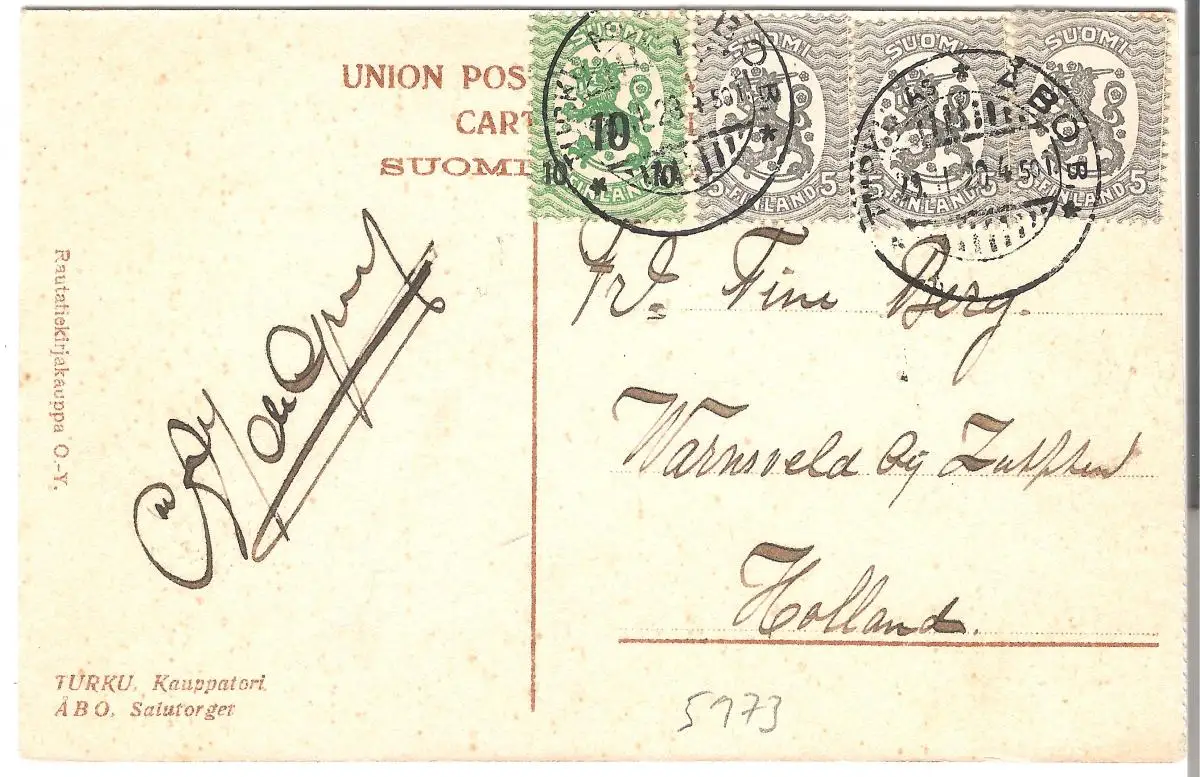 UNION POS
CART L
SUOMI
SUOMI
10
10 10
FINLAND
SUOMI
5 FINLAND 5
SUOMI
5 FINLAND 5
SUOMI
5 FINLAND 5
TURKU ÅBO
ÅBO
Fine Berg.
Warnsveld bij Zutphen
Holland.
Rautatiekirjakauppa O.-Y.
TURKU. Kauppatori.
ÅBO. Salutorget
5173